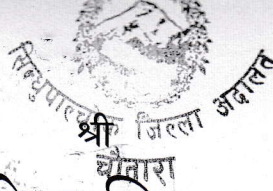 सिन्धुपाल्चोक जिल्ला अदालत
श्री
चौतारा